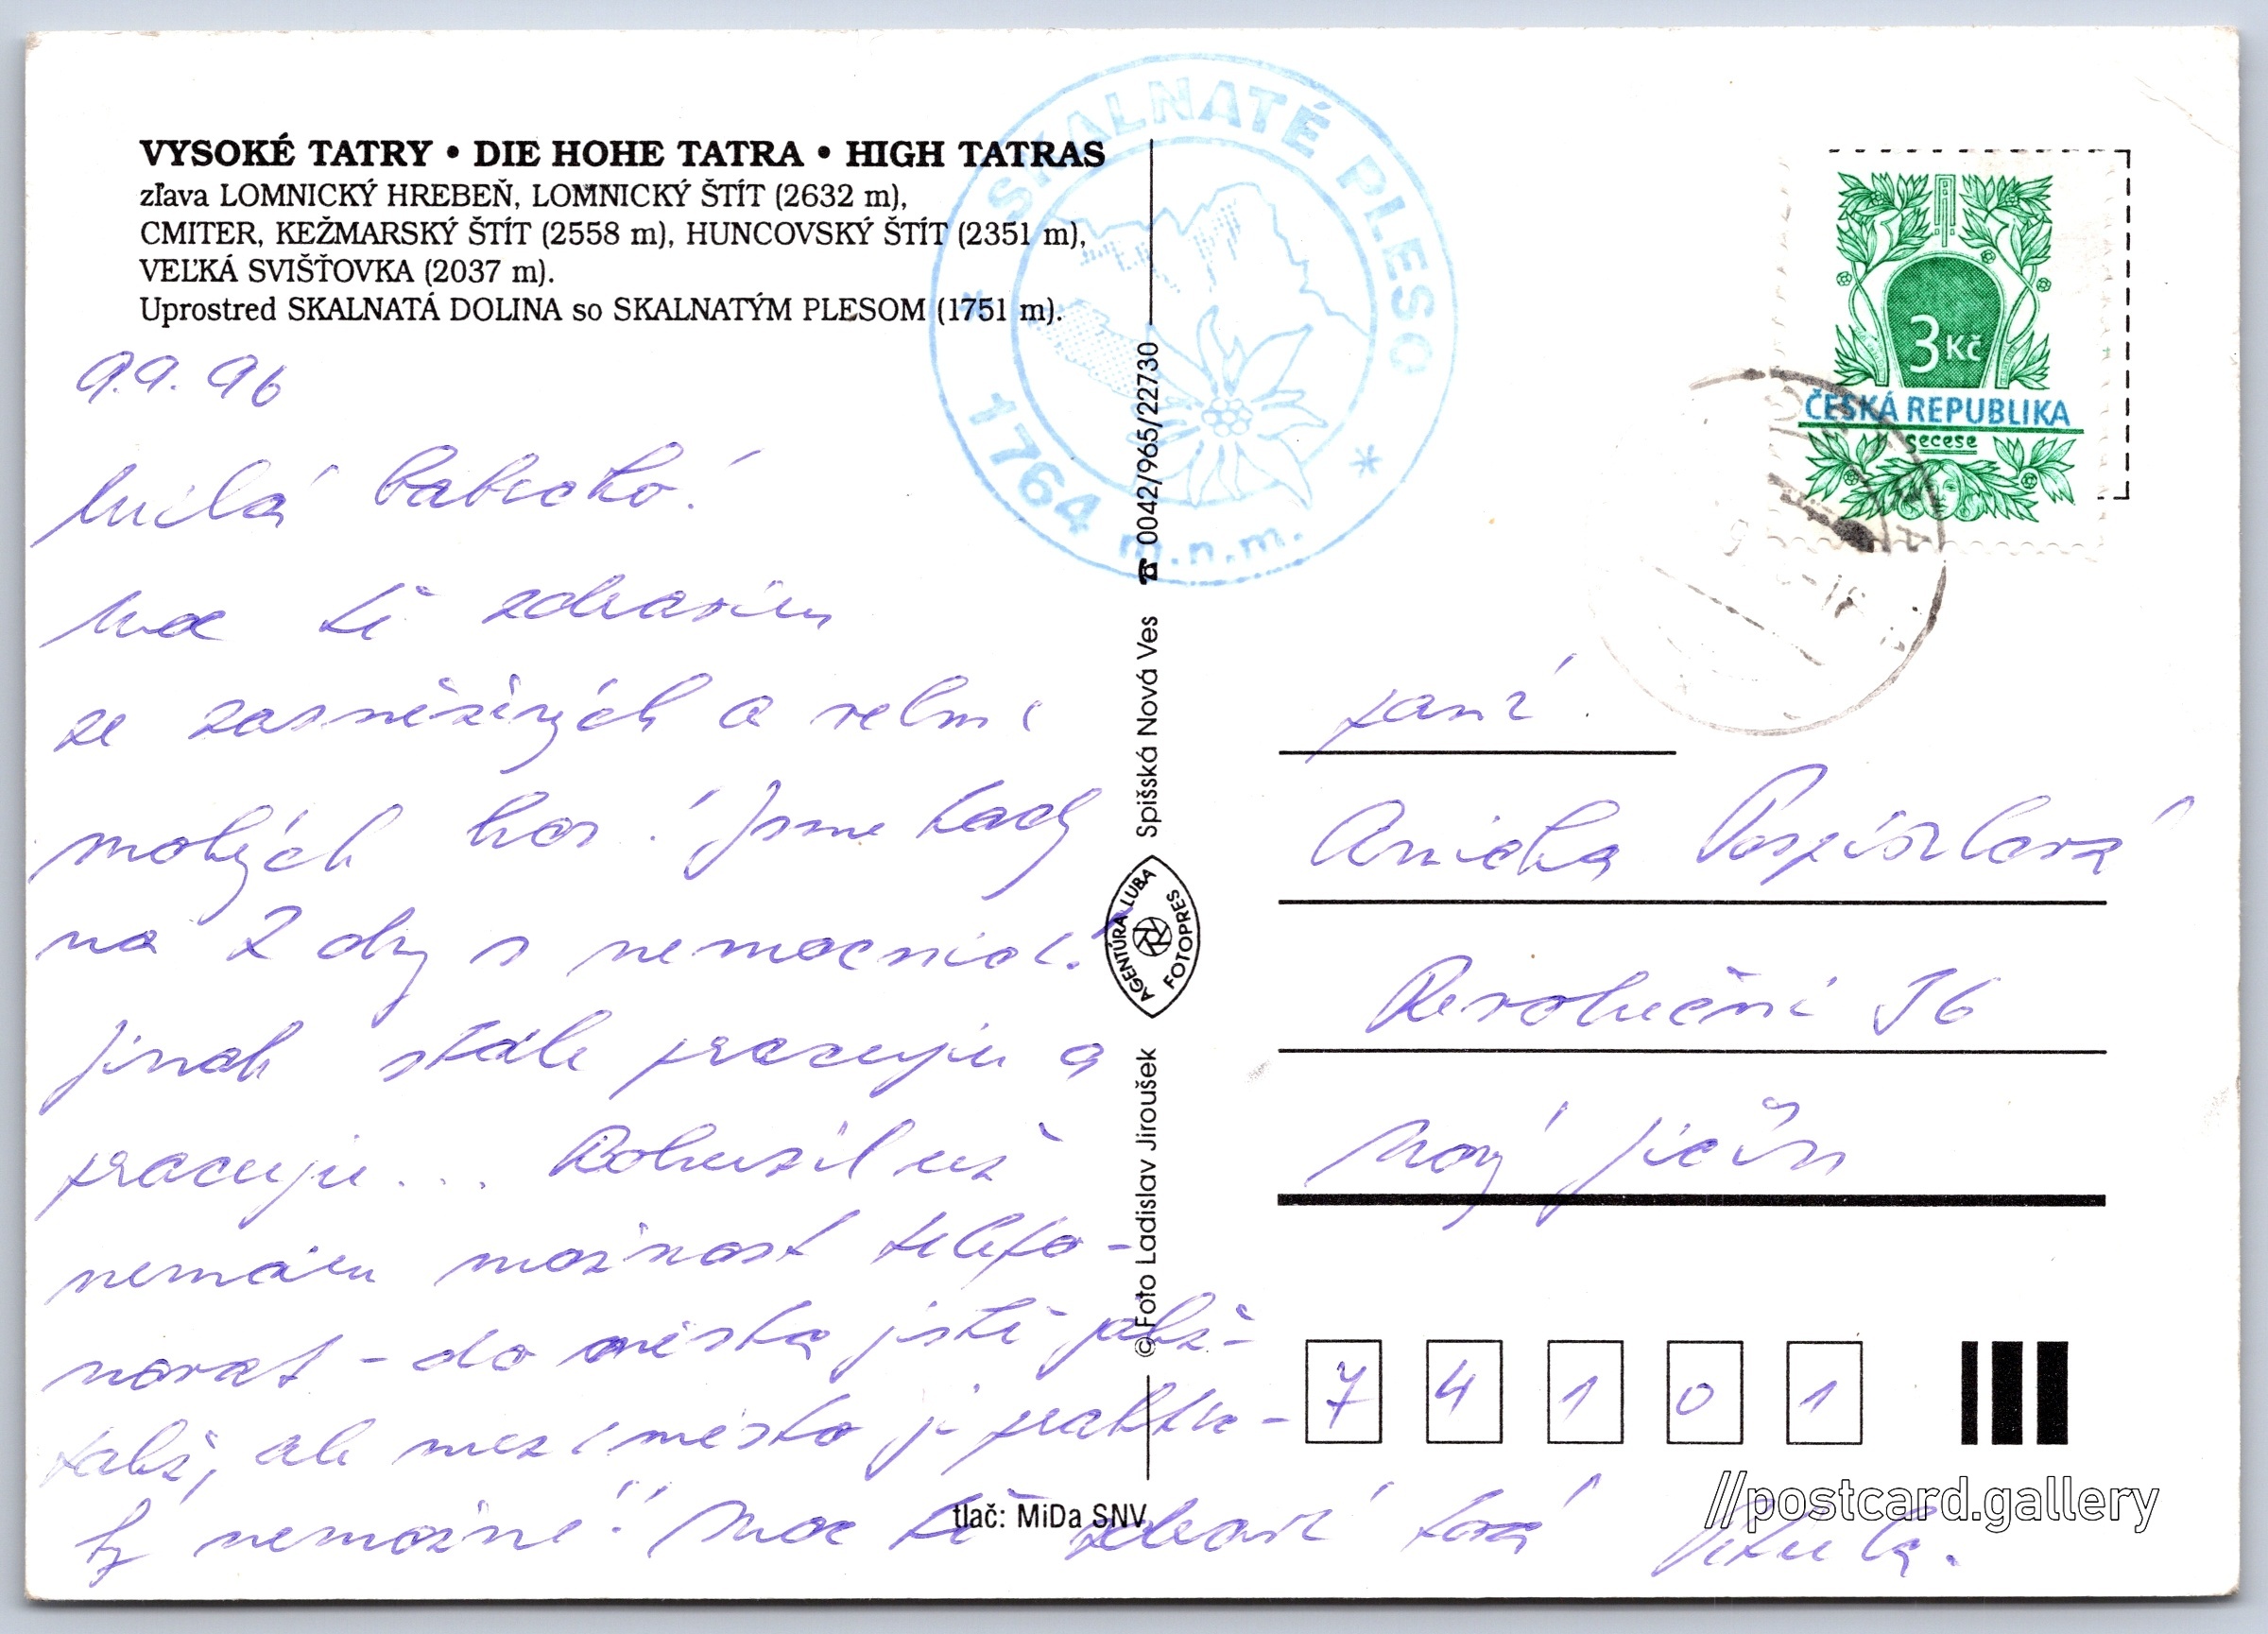 VYSOKÉ TATRY • DIE HOHE TATRA • HIGH TATRAS
zľava LOMNICKÝ HREBEŇ, LOMNICKÝ ŠTÍT (2632 m),
CMITER, KEŽMARSKÝ ŠTÍT (2558 m), HUNCOVSKÝ ŠTÍT (2351 m),
VEĽKÁ SVIŠŤOVKA (2037 m).
Uprostred SKALNATÁ DOLINA so SKALNATÝM PLESOM (1751 m).
SKALNATÉ PLESO
1764 m.n.m.
3 Kč
ČESKÁ REPUBLIKA
secese
9.9. 96
Milá babičko!
Moc tě zdravím
ze zasněžených a velmi
mokrých hor! Jsme tady
na 2 dny s nemocnicí.
Jinak stále pracuju a
pracuju... Bohužel už
nemám možnost telefo-
novat - do města jistě
ale mezi město je praktic-
ky nemožné! Moc tě zdraví tvá
☎ 0042/965/22730
Spišská Nová Ves
AGENTÚRA LUBA FOTOPRES
© Foto Ladislav Jiroušek
tlač: MiDa SNV
paní
Anička Pospíšilová
Revoluční 56
Nový Jičín
7 4 1 0 1
//postcard.gallery